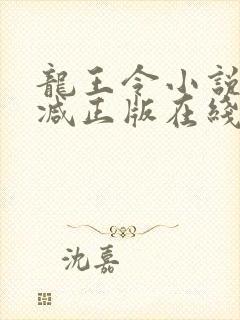 龍王令小説
减正版在綫
沈嘉